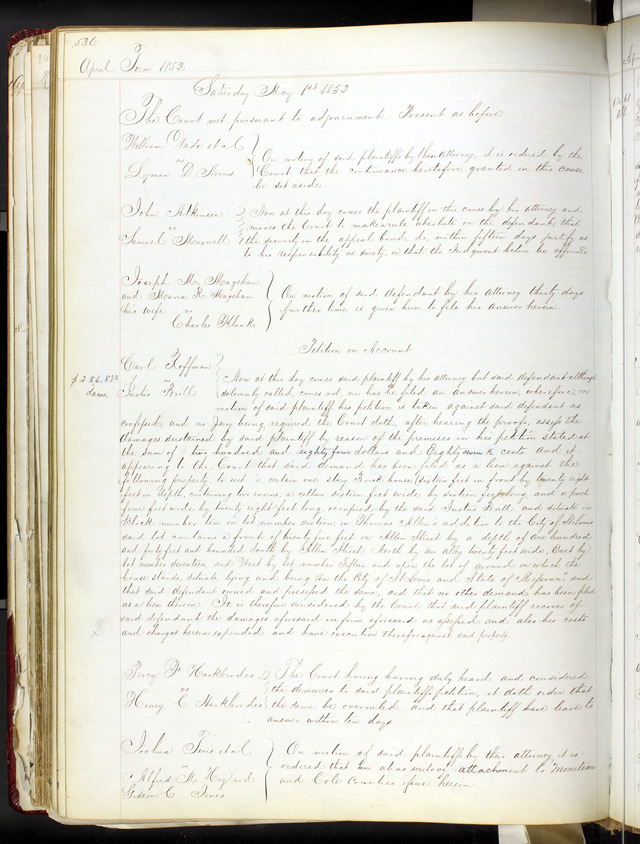 536
April Term 1852.
Saturday May 1st 1852
The Court met pursuant to adjournment. Present as before
William Wade et al
vs
Lyman D
On motion of said plaintiffs by their attorney, it is ordered by the
Court that the continuance heretofore granted in this cause
be set aside.
John Atkinson
vs
Samuel Maxwell
Now at this day comes the plaintiff in this cause by his attorney and
moves the Court to make a rule absolute on the defendant, that
the security in the appeal bond, do, within fifteen days justify as
to his responsibility as surety, or that the Judgment below be affirmed
Joseph M. Magehan
and Maria R. Magehan
his wife vs
Charles Klunk
On motion of said defendant by his attorney thirty days
further time is given him to file his answer herein.
Petition on Account
Carl Hoffman
vs
Justus Brill
$286.87½
Dam.
Now at this day comes said plaintiff by his attorney but said defendant although
solemnly called, comes not, nor has he filed an answer herein, wherefore, on
motion of said plaintiff his petition is taken against said defendant as
confessed, and no Jury being required the Court doth, after hearing the proofs, assess the
damages sustained by said plaintiff by reason of the premises in his petition stated at
the sum of two hundred and eighty four dollars and Eighty seven ½ cents And it
appearing to the Court that said demand has been filed as a lien against the
following property, to wit a certain one story Brick house (sixteen feet in front by twenty eight
feet in depth, containing two rooms, a cellar sixteen feet wide by sixteen feet long and a porch
four feet wide by twenty eight feet long, occupied by the said Justus Brill and situate in
Block number ten on lot number sixteen in Thomas Allen's addition to the City of St Louis
said lot contains a front of twenty five feet on Allen Street by a depth of One hundred
and forty feet and bounded South by Allen Street, North by an alley twenty feet wide, East by
lot number seventeen and West by lot number fifteen and upon the lot of ground on which the
house stands, situate lying and being in the City of St Louis and State of Missouri; and
that said defendant owned and possessed the same, and that no other demand has been filed
as a lien thereon. It is therefore considered by the Court that said plaintiff recover of
said defendant the damages aforesaid in form aforesaid as assessed and also his costs
and charges herein expended and have execution therefor against said property.
Percy F Hawkbrodes
vs
Henry C. Hawkbrodes
The Court having having duly heard and considered
the demurrer to said plaintiffs petition, it doth order that
the same be overruled and that plaintiff have leave to
answer within ten days
Joshua et al
vs
Alfred M. Hoy and
Gideon C. Jones
On motion of said plaintiffs by their attorney it is
ordered that an alias writ of attachment to Moniteau
and Cole Counties issue herein.